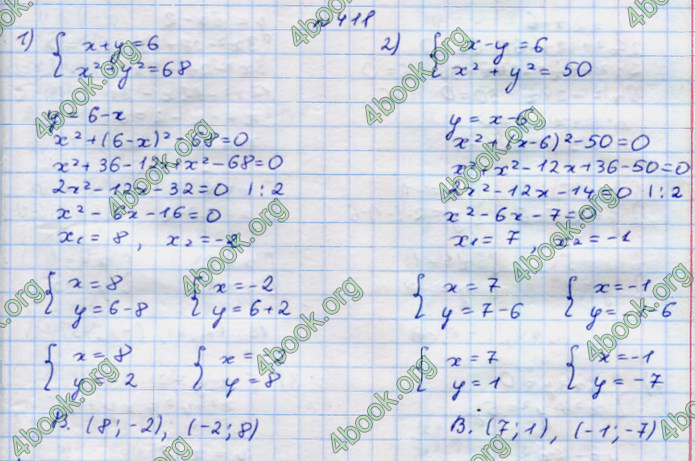 № 418
1) { x+y=6
x²+y²=68
y=6-x
x²+(6-x)²-68=0
x²+36-12x+x²-68=0
2x²-12x-32=0 |:2
x²-6x-16=0
x₁=8, x₂=-2
{ x=8
y=6-8
{ x=-2
y=6+2
{ x=8
y=-2
{ x=-2
y=8
В. (8;-2), (-2;8)
2) { x-y=6
x²+y²=50
y=x-6
x²+(x-6)²-50=0
x²+x²-12x+36-50=0
2x²-12x-14=0 |:2
x²-6x-7=0
x₁=7, x₂=-1
{ x=7
y=7-6
{ x=-1
y=-1-6
{ x=7
y=1
{ x=-1
y=-7
В. (7;1), (-1;-7)
4book.org